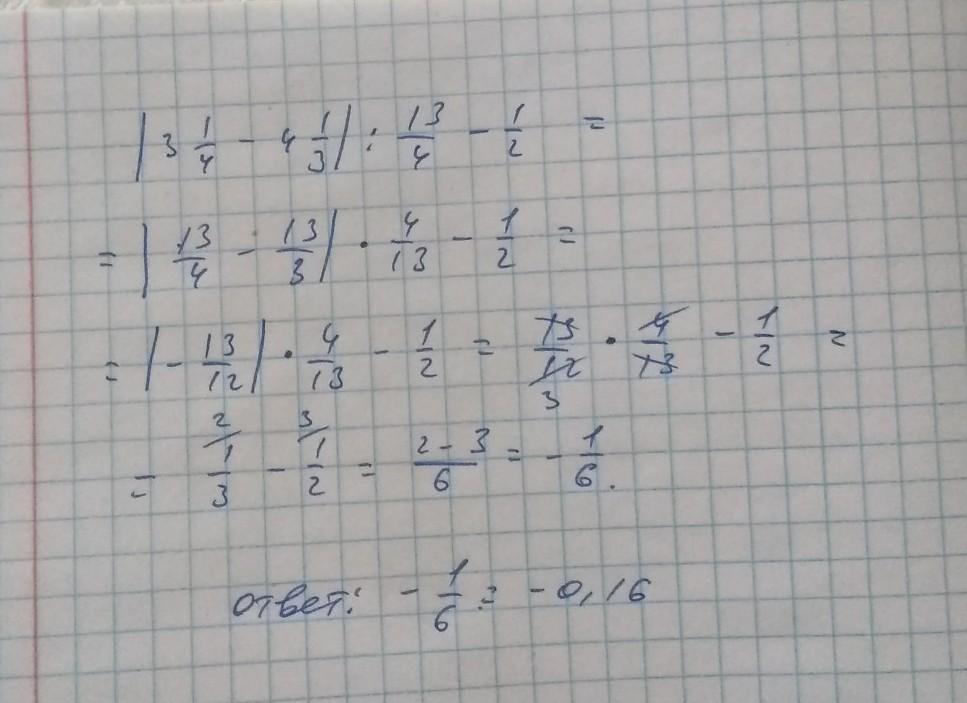 |3 1/4 - 4 1/3| : 13/4 - 1/2 =
= |13/4 - 13/3| · 4/13 - 1/2 =
= |- 13/12| · 4/13 - 1/2 = 13/12 3 · 4/13 - 1/2 =
= 2/ 1/3 - 3/ 1/2 = 2-3/6 = - 1/6.
ответ: - 1/6 = -0,16